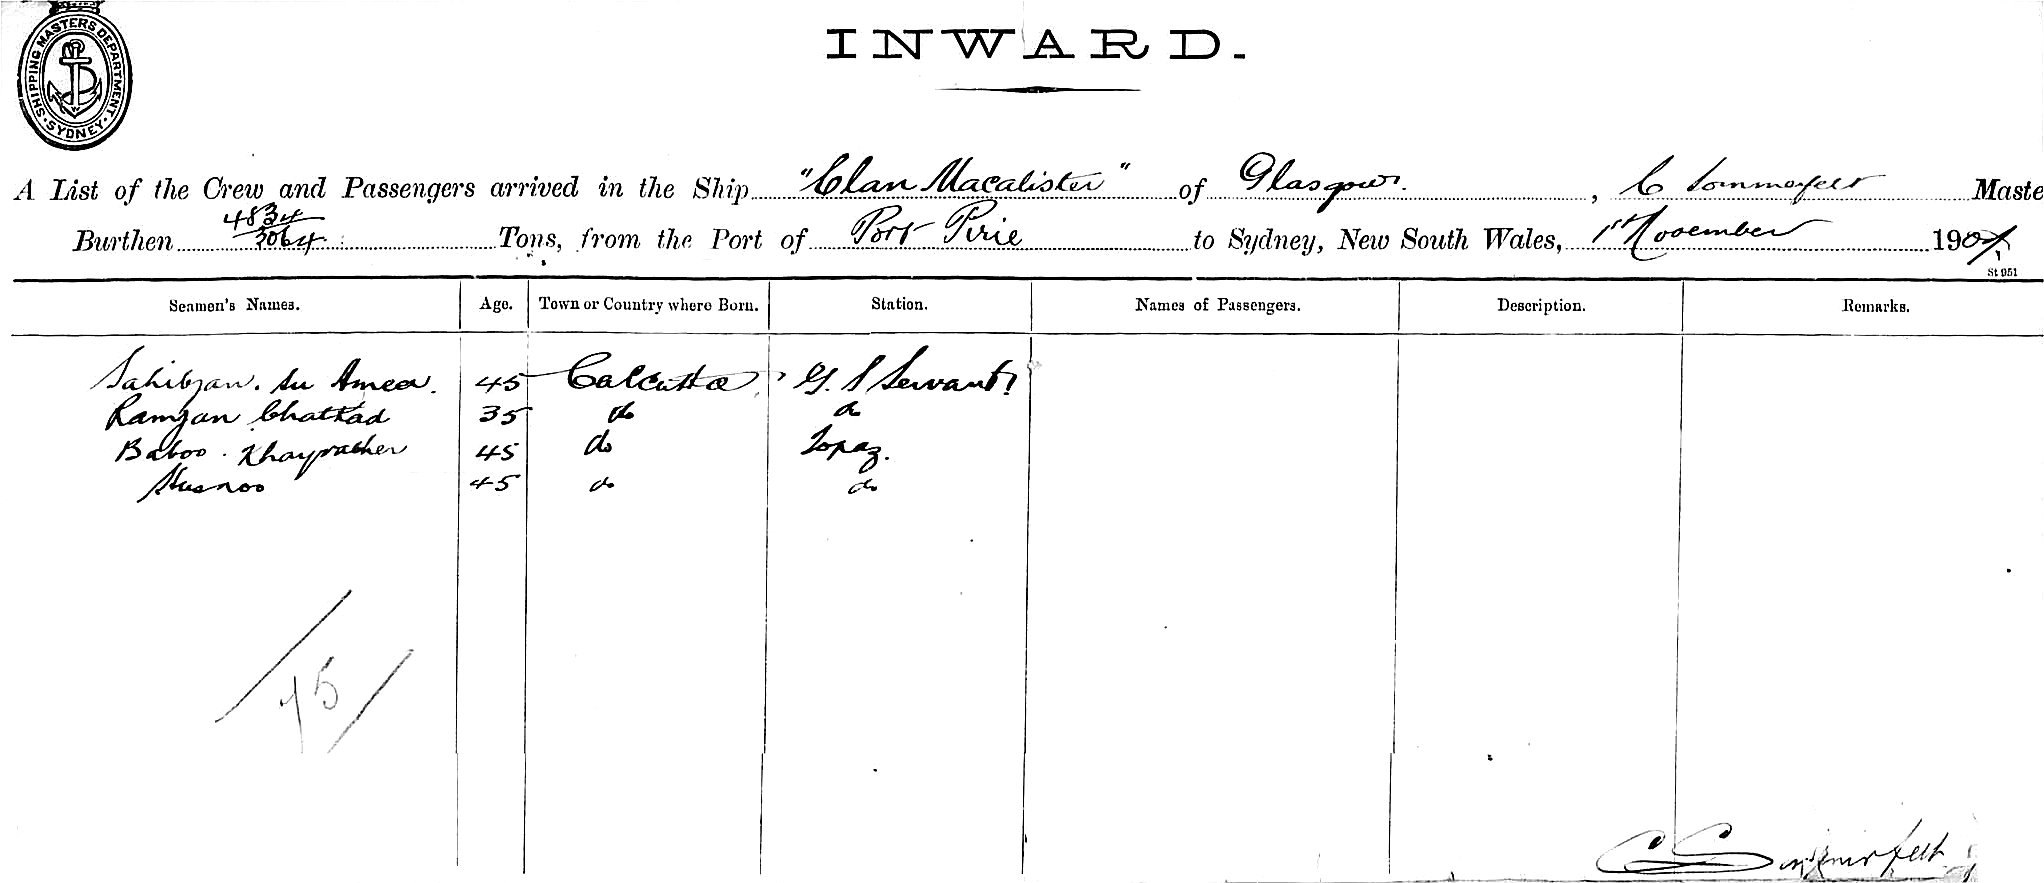 SHIPPING MASTERS DEPARTMENT. SYDNEY.
INWARD.
A List of the Crew and Passengers arrived in the Ship "Clan Macalister" of Glasgow, C Sommerfelt Maste
Burthen 4834/3064 Tons, from the Port of Port Pirie to Sydney, New South Wales, 1st November 190
St 951
Seamen's Names. Age. Town or Country where Born. Station. Names of Passengers. Description. Remarks.
Sahibjan. Su Ameer. 45 Calcutta G. S Servant
Ramjan 35 do do
Baboo. 45 do Topaz.
Husnoo 45 do do
75
C Sommerfelt